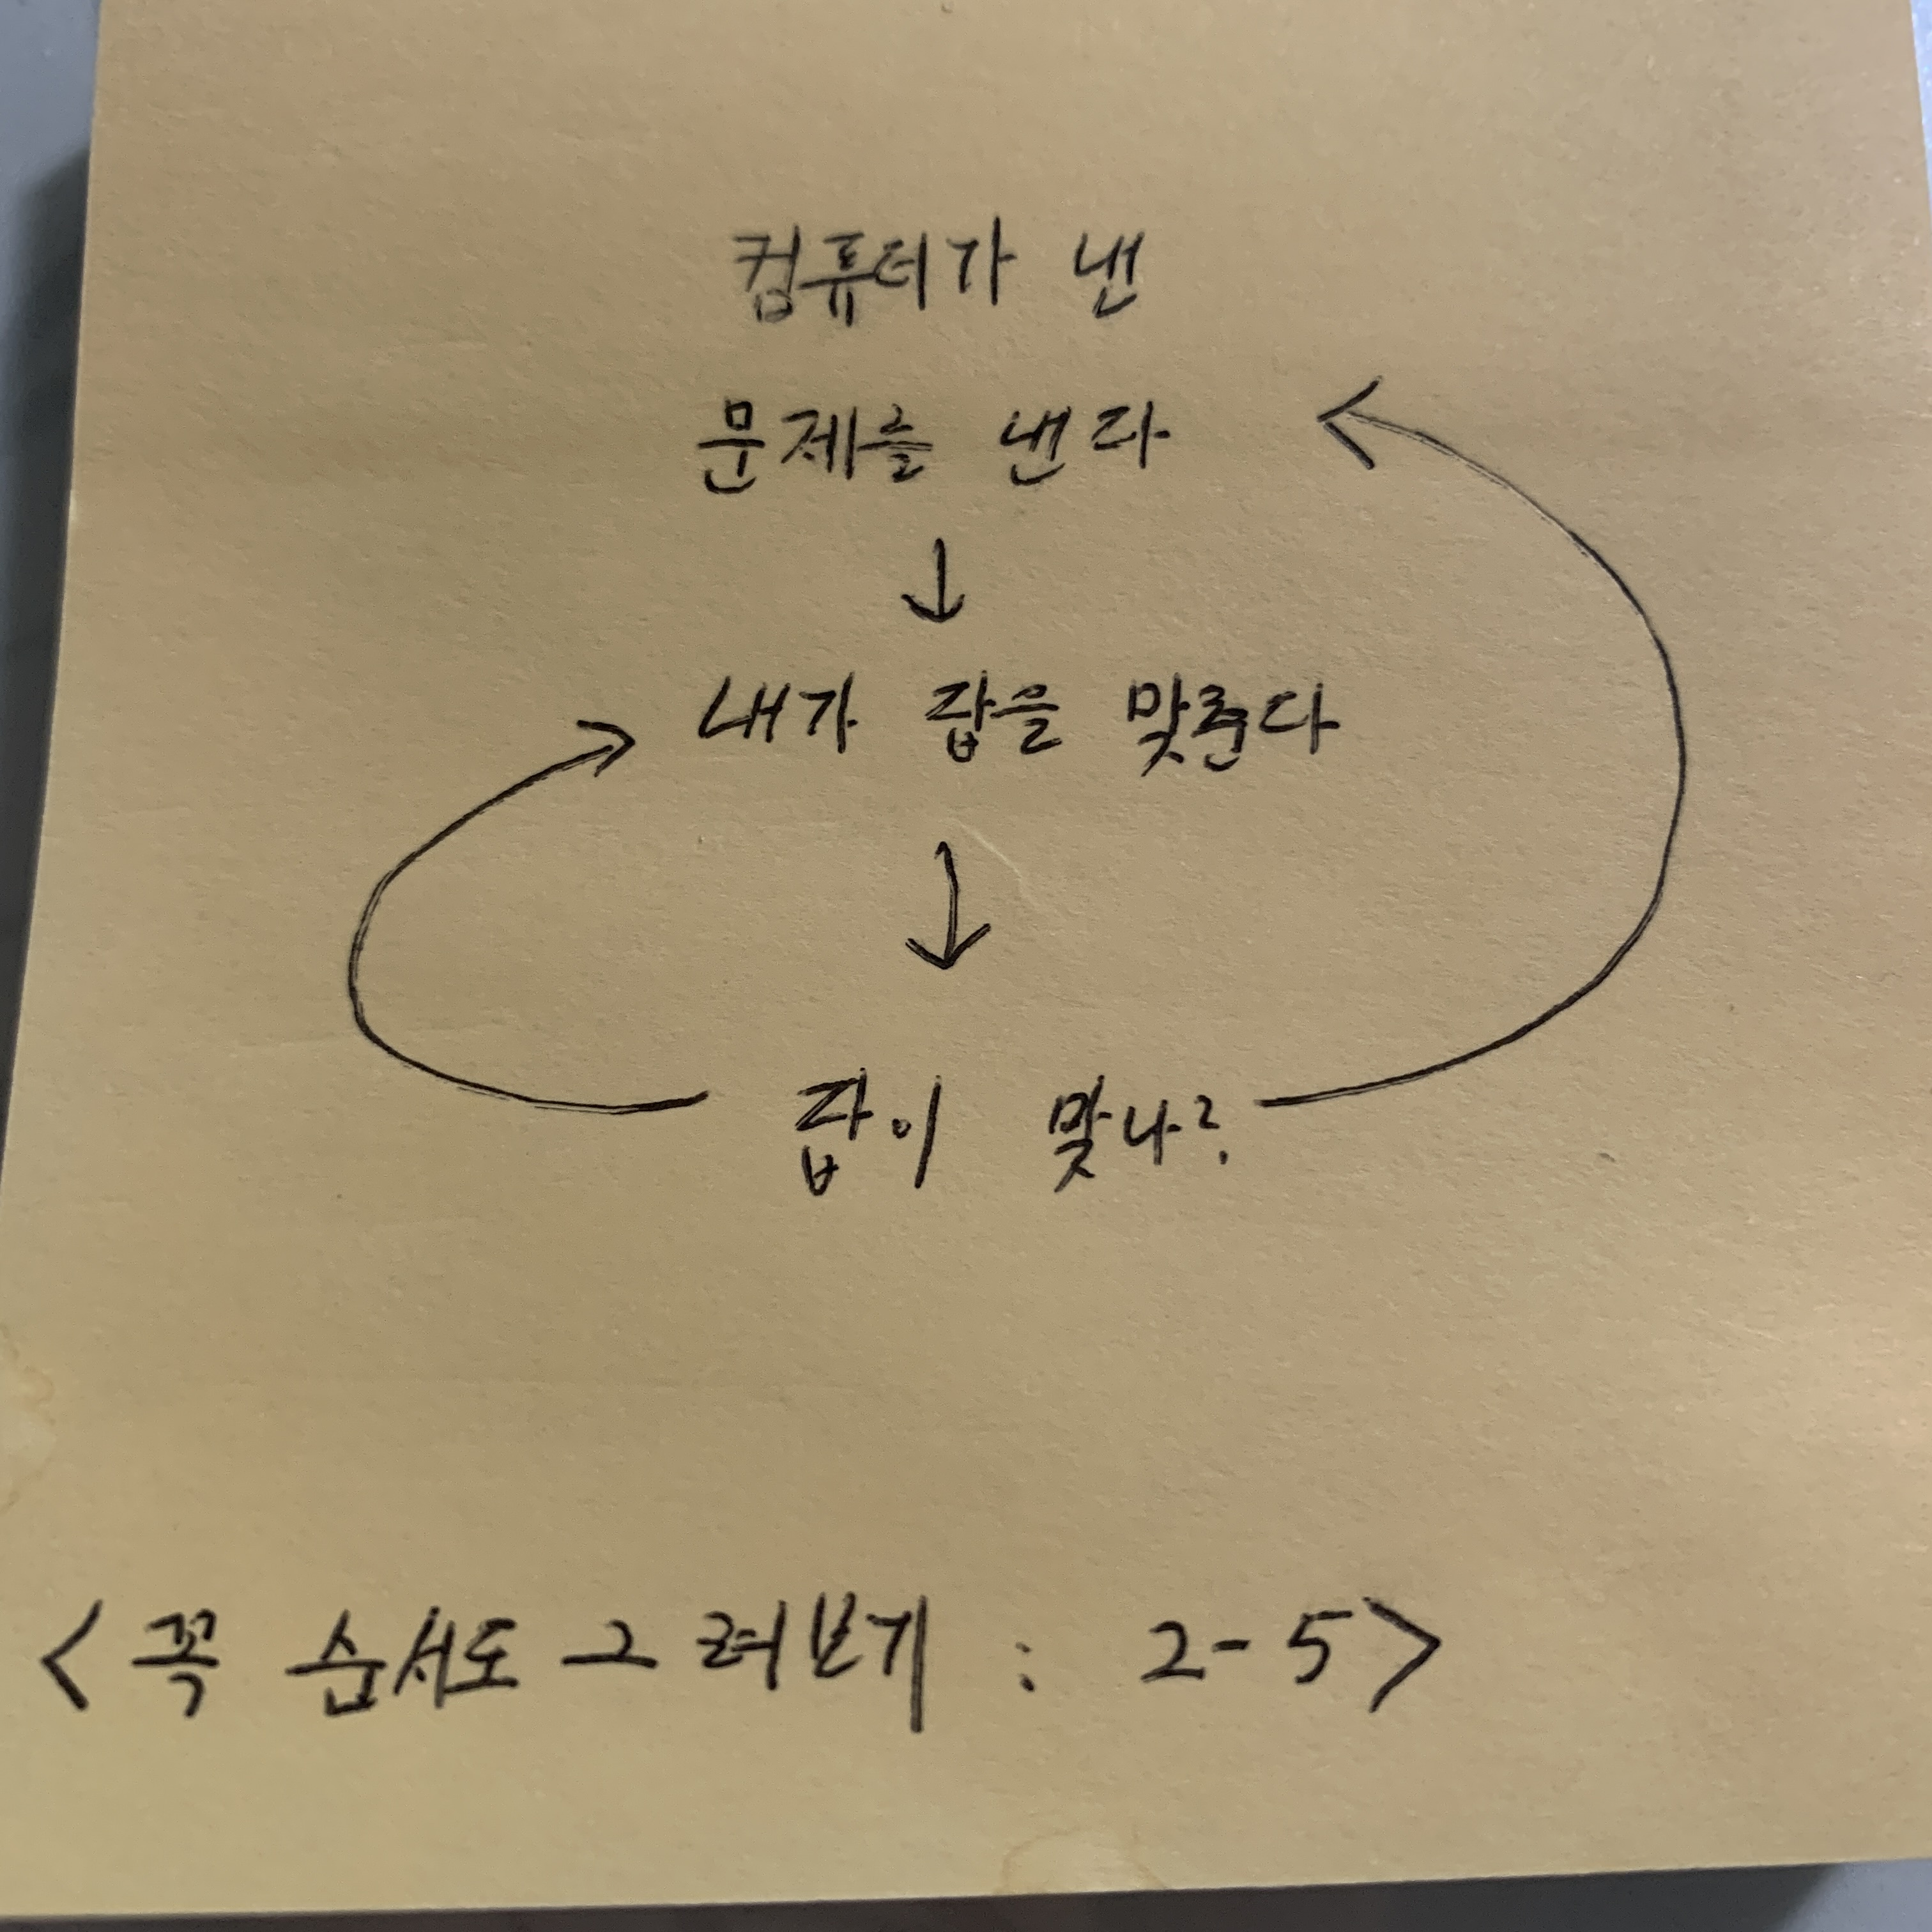 컴퓨터가 낸
문제를 낸다
내가 답을 맞춘다
답이 맞나?
<꼭 순서도 그려보기 : 2-5>